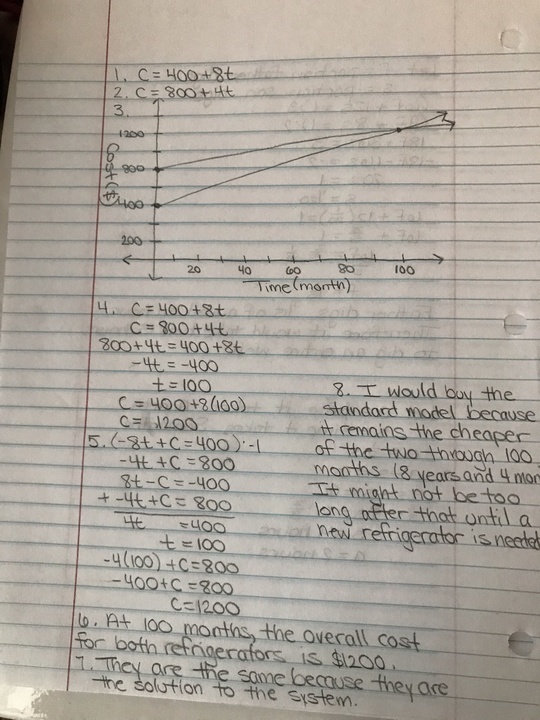 1. C = 400 + 8t
2. C = 800 + 4t
3.
1200
800
400
200
Cost ($)
20 40 60 80 100
Time (month)
4. C = 400 + 8t
C = 800 + 4t
800 + 4t = 400 + 8t
-4t = -400
t = 100
C = 400 + 8(100)
C = 1200
5. (-8t + C = 400) · -1
-4t + C = 800
8t - C = -400
+ -4t + C = 800
4t = 400
t = 100
-4(100) + C = 800
-400 + C = 800
C = 1200
6. At 100 months, the overall cost
for both refrigerators is $1200.
7. They are the same because they are
the solution to the system.
8. I would buy the
standard model because
it remains the cheaper
of the two through 100
months (8 years and 4 mon
It might not be too
long after that until a
new refrigerator is needed